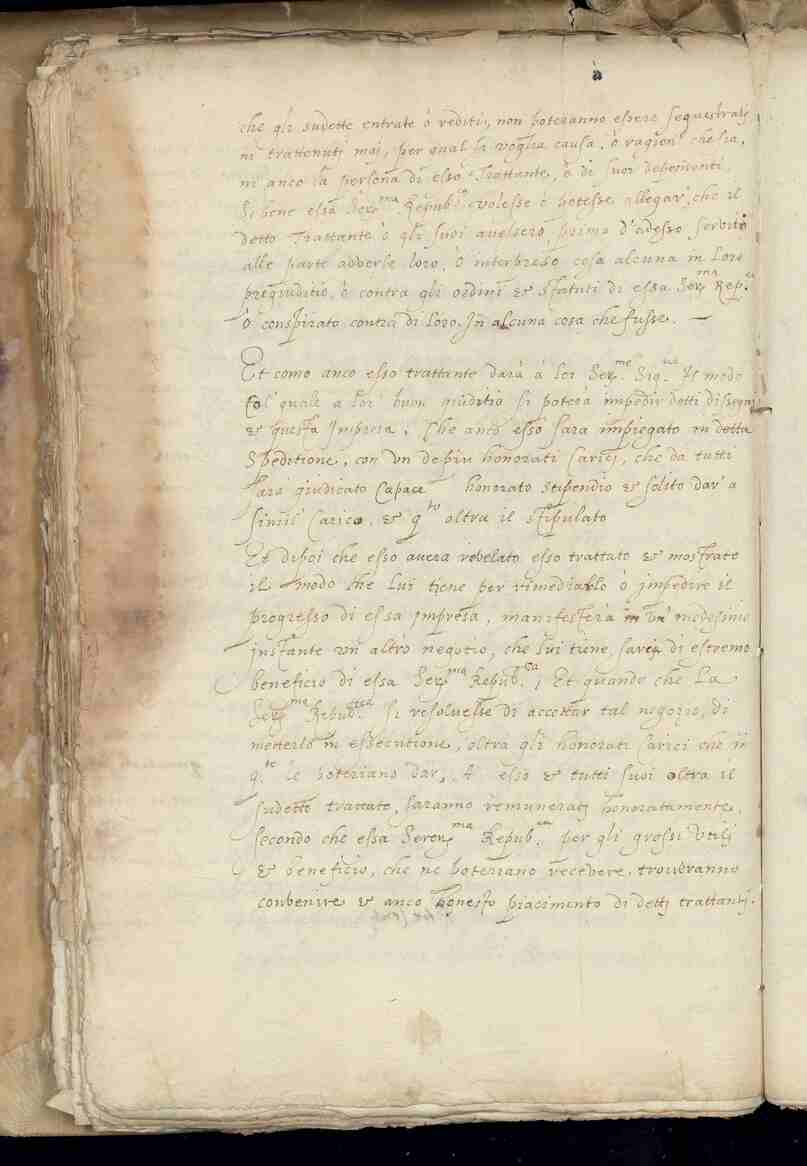 che gli sudette entrate ò rediti, non poteranno essere sequestratj
ni trattenuti mai, per qual si voglia causa, ò ragion' che sia,
ni anco la persona di esso Trattante, ò di suoi dependenti
Si bene essa Ser.ma Repub.ca volesse è potesse allegar', che il
detto Trattante ò gli suoi avessero, prima d'adesso servito
alle parte adverse loro, ò interpreso cosa alcuna in Loro
preiuditio, ò contra gli ordini et statuti di essa Ser.ma Rep.ca
ò conspirato contra di Loro, In alcuna cosa che fusse. —
Et como anco esso trattante darà à lor Ser.me Sig.rie Il modo
Col' quale a lor' buon giuditio si poterà impedir detti dissegni
et questa Impresa. Che anco esso sara impiegato in detta
Speditione, con vn de piu honorati Carici, che da tutti
sarà giudicato Capace honorato stipendio et solito dar' a
simili Carico, et q.to oltra il stipulato
Et dipoi che esso auera revelato esso trattato et mostrato
il modo che lui tiene per rimediarlo ò impedire il
progresso di essa impresa, manifesterà in vn' medesimo
instante vn altro negotio, che lui tiene, saria di estremo
beneficio di essa Ser.ma Repub.ca; Et quando che La
Ser.ma Repub.ca si resoluesse di accettar tal negozio, di
metterlo in essecutione, oltra gli honorati Carici che in
q.to le poteriano dar, A esso et tutti suoi oltra il
sudetto trattato, saranno remuneratj honoratamente,
secondo che essa Seren.ma Repub.ca per gli grossi vtilj
et beneficio, che ne poteriano recevere, trouaranno
convenire et anco honesto piacimento di dettj trattantj.